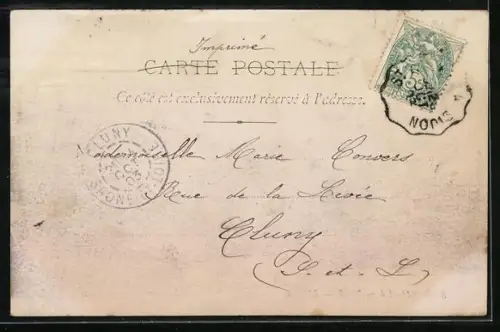 Imprimé
CARTE POSTALE
Ce côté est exclusivement réservé à l'adresse.
CLUNY
SAÔNE
Mademoiselle Marie Convers
Rue de la Levée
Cluny
(S. et L.)